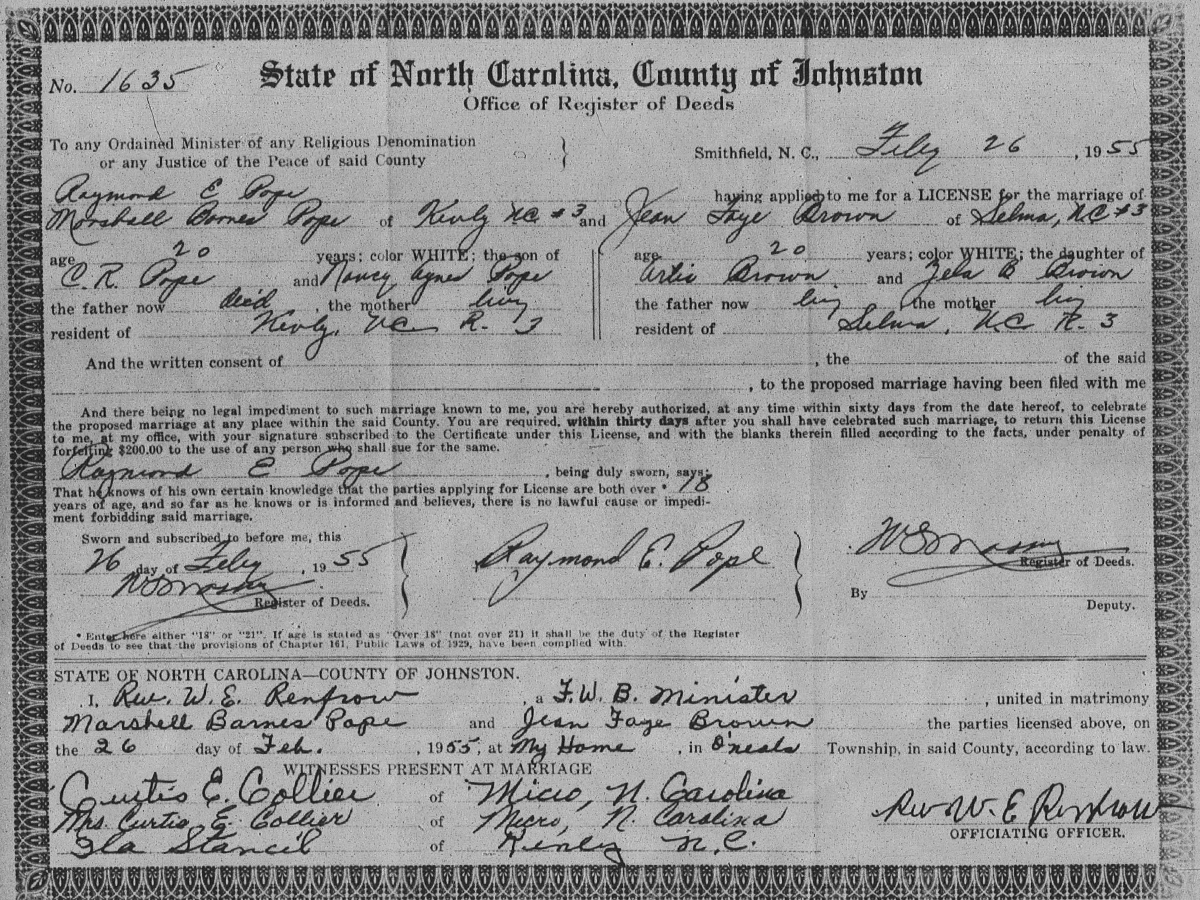 No. 1635 State of North Carolina, County of Johnston
Office of Register of Deeds
To any Ordained Minister of any Religious Denomination
or any Justice of the Peace of said County
Smithfield, N. C., Feby 26, 1955
Raymond E Pope having applied to me for a LICENSE for the marriage of
Marshall Barnes Pope of Kenly NC #3 and Jean Faye Brown of Selma, NC #3
age 20 years; color WHITE; the son of
C. R. Pope and Nancy Agnes Pope
the father now died, the mother living
resident of Kenly, NC R. 3
age 20 years; color WHITE; the daughter of
Artie Brown and Zela B Brown
the father now living, the mother living
resident of Selma, NC R. 3
And the written consent of , the of the said
, to the proposed marriage having been filed with me
And there being no legal impediment to such marriage known to me, you are hereby authorized, at any time within sixty days from the date hereof, to celebrate
the proposed marriage at any place within the said County. You are required, within thirty days after you shall have celebrated such marriage, to return this License
to me, at my office, with your signature subscribed to the Certificate under this License, and with the blanks therein filled according to the facts, under penalty of
forfeiting $200.00 to the use of any person who shall sue for the same.
Raymond E Pope, being duly sworn, says:
That he knows of his own certain knowledge that the parties applying for License are both over * 18
years of age, and so far as he knows or is informed and believes, there is no lawful cause or impedi-
ment forbidding said marriage.
Sworn and subscribed to before me, this
26 day of Feby, 1955
Register of Deeds.
Raymond E. Pope
Register of Deeds.
By
Deputy.
* Enter here either "18" or "21". If age is stated as "Over 18" (not over 21) it shall be the duty of the Register
of Deeds to see that the provisions of Chapter 161, Public Laws of 1929, have been complied with.
STATE OF NORTH CAROLINA—COUNTY OF JOHNSTON.
I, Rev. W. E. Renfrow a F. W. B. Minister, united in matrimony
Marshell Barnes Pope and Jean Faye Brown the parties licensed above, on
the 26 day of Feb., 1955, at My Home, in O'neals Township, in said County, according to law.
WITNESSES PRESENT AT MARRIAGE
Curtis E. Collier of Micro, N. Carolina
Mrs. Curtis E. Collier of Micro, N. Carolina
Ila Stancil of Kenly N.C.
Rev W. E Renfrow
OFFICIATING OFFICER.